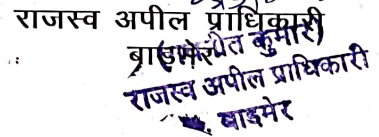 राजस्व अपील प्राधिकारी
बाड़मेर
कुमारी)
राजस्व अपील प्राधिकारी
बाडमेर